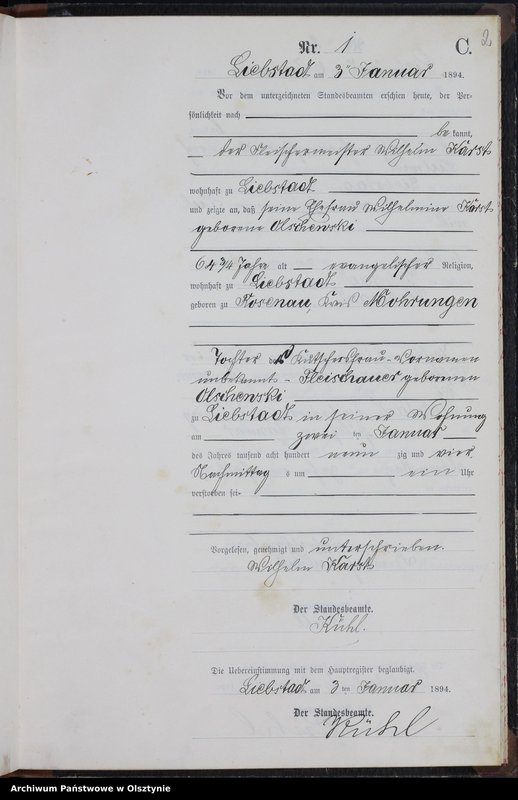 Nr. 1 C. 2
Liebstadt am 3ten Januar 1894.
Vor dem unterzeichneten Standesbeamten erschien heute, der Per-
sönlichkeit nach
be kannt,
der Fleischermeister Wilhelm Karst
wohnhaft zu Liebstadt
und zeigte an, daß seine Ehefrau Wilhelmine Karst
geborene Olschewski
64 3/4 Jahre alt evangelischer Religion,
wohnhaft zu Liebstadt
geboren zu Rosenau, Kreis Mohrungen
Tochter der Kutscherfrau - Vornamen
unbekannt - Fleischauer geborenen
Olschewski
zu Liebstadt in seiner Wohnung
am zwei ten Januar
des Jahres tausend acht hundert neun zig und vier
Nachmittag s um ein Uhr
verstorben sei.
Vorgelesen, genehmigt und unterschrieben.
Wilhelm Karst
Der Standesbeamte.
Kühl.
Die Uebereinstimmung mit dem Hauptregister beglaubigt.
Liebstadt am 3 ten Januar 1894.
Der Standesbeamte.
Kühl
Archiwum Państwowe w Olsztynie